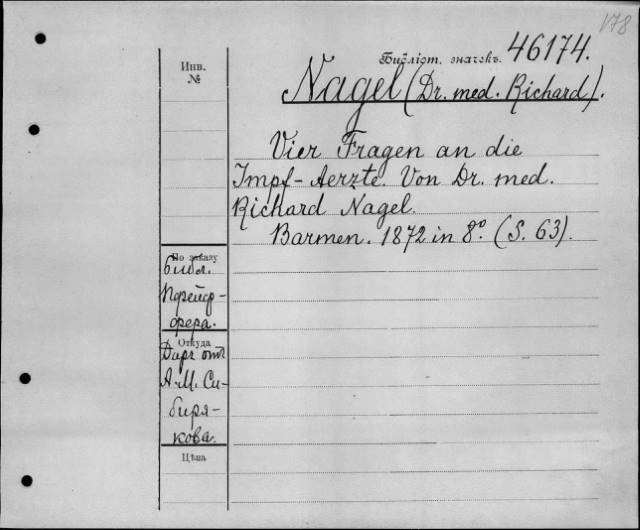 178
Библіот. значекъ. 46174.
Инв.
№
Nagel (Dr. med. Richard).
Vier Fragen an die
Impf-Aerzte. Von Dr. med.
Richard Nagel.
Barmen. 1872 in 8° (S. 63).
По заказу
библ.
Пфейф-
фера.
Откуда
Даръ отъ
А. М. Си-
биря-
кова.
Цѣна